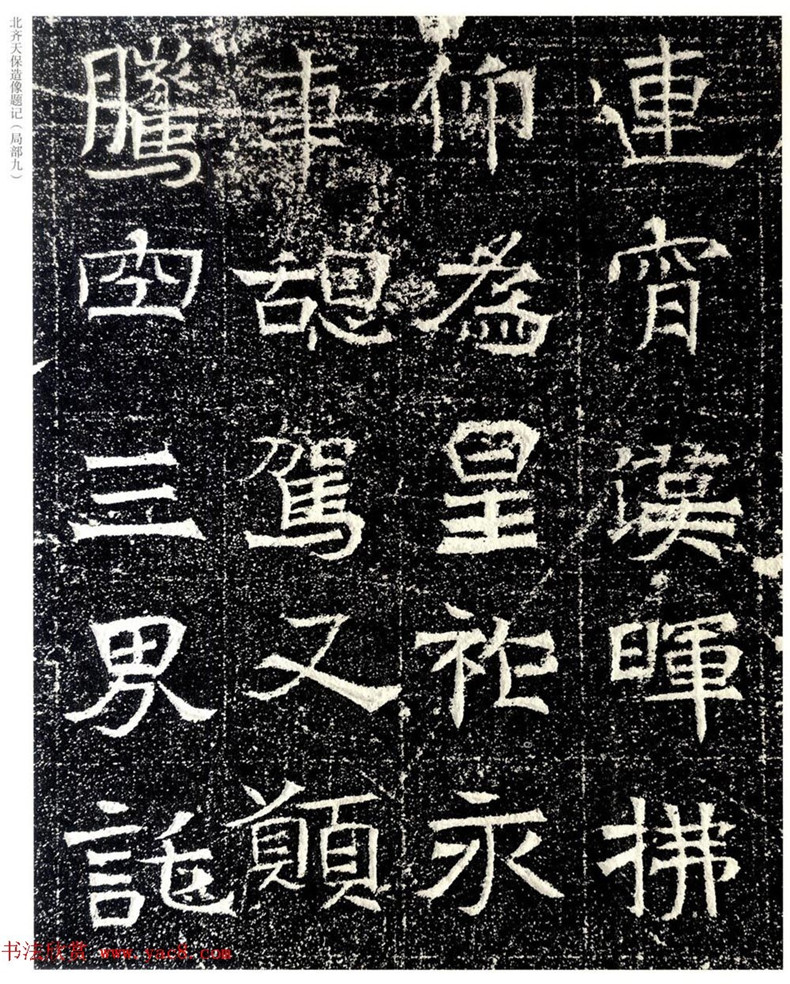 連宵漢暉拂
仰為皇祚永
車憩駕又願
騰三界託
北齐天保造像题记（局部九）
书法欣赏 www.yac8.com